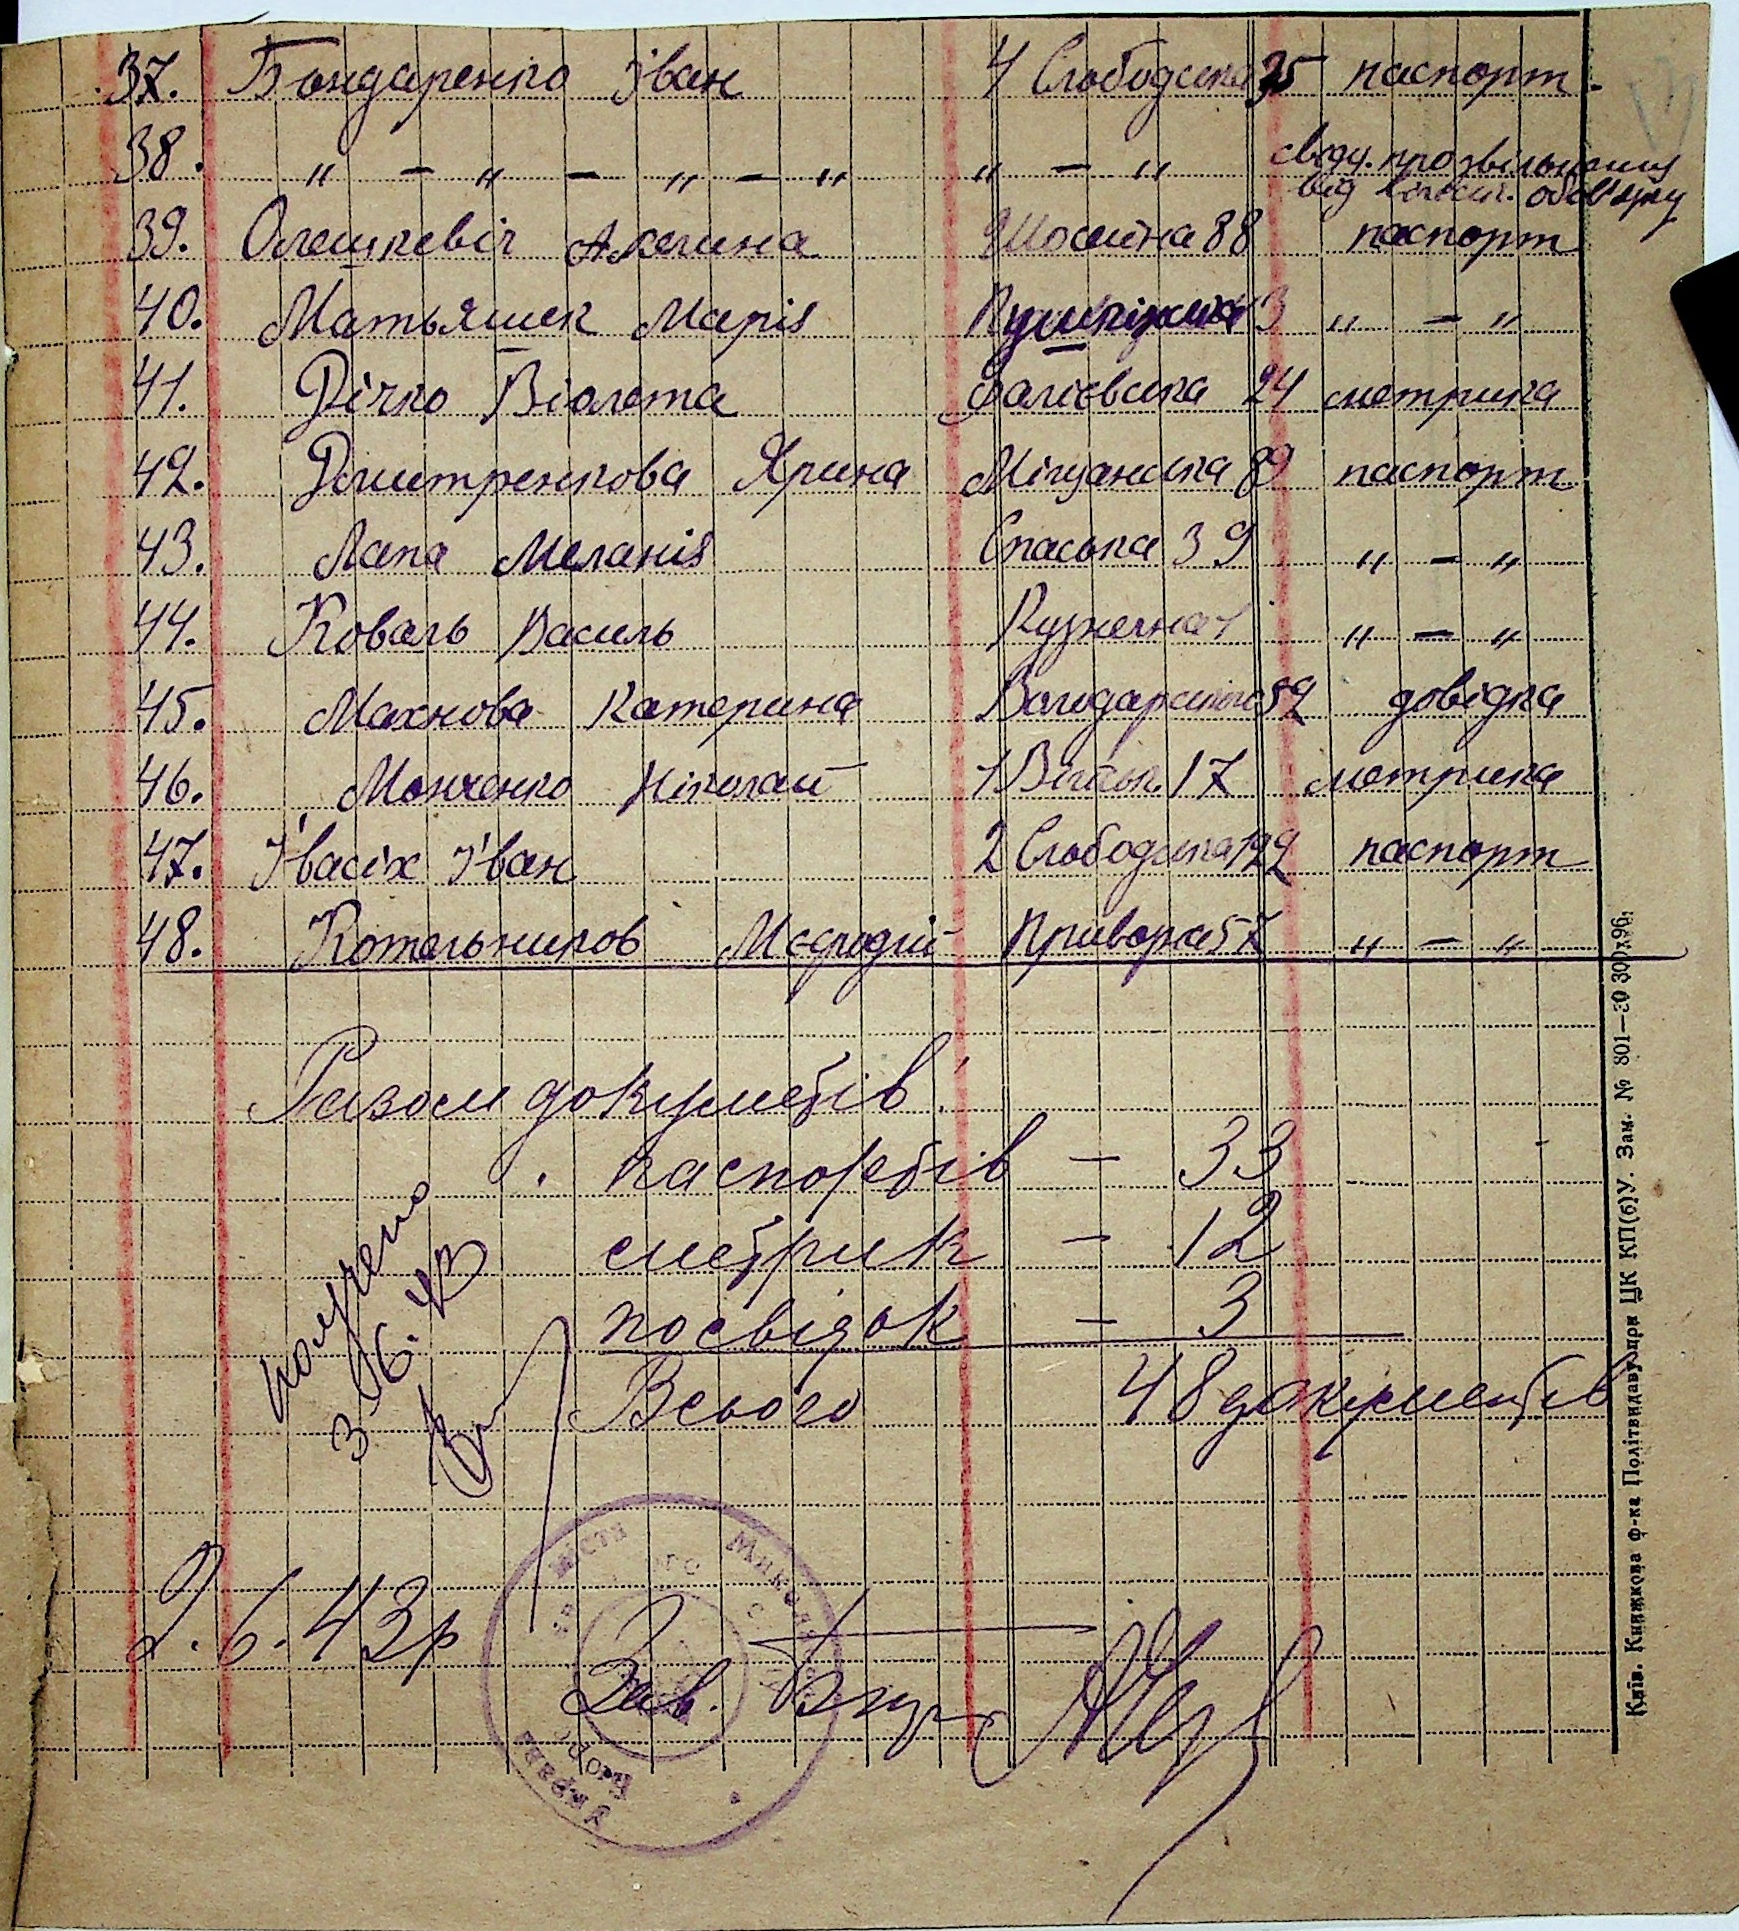 37. Бондаренко Іван 4 Слободська 35 паспорт.
38. " – " – " – " " – " свідч. про звільнення
від обов'язку
39. Олешкевіч Акелина Шосейна 88 паспорт
40. Матьяшек Марія Пушкінська 13 " – "
41. Дічко Віолета Фалієвська 24 метрика
42. Дмитренкова Ярина Міщанська 89 паспорт
43. Лапа Меланія Спаська 39 " – "
44. Коваль Василь Кузнечна 1 " – "
45. Махнова Катерина 52 довідка
46. Монченко Ніколай 1 Військ. 17 метрика
47. Івасіх Іван 2 Слободська 122 паспорт
48. Котельников Мефодій 57 " – "
Разом документів:
паспортів – 33
метрик – 12
посвідок – 3
Всього 48 документів
получено
3 06. 43
2. 6. 43 р
Зав. Бюро
Управа міста Миколаєва
Бюро
Київ. Книжкова ф-ка Політвидаву при ЦК КП(б)У. Зам. № 801—20 300х96.